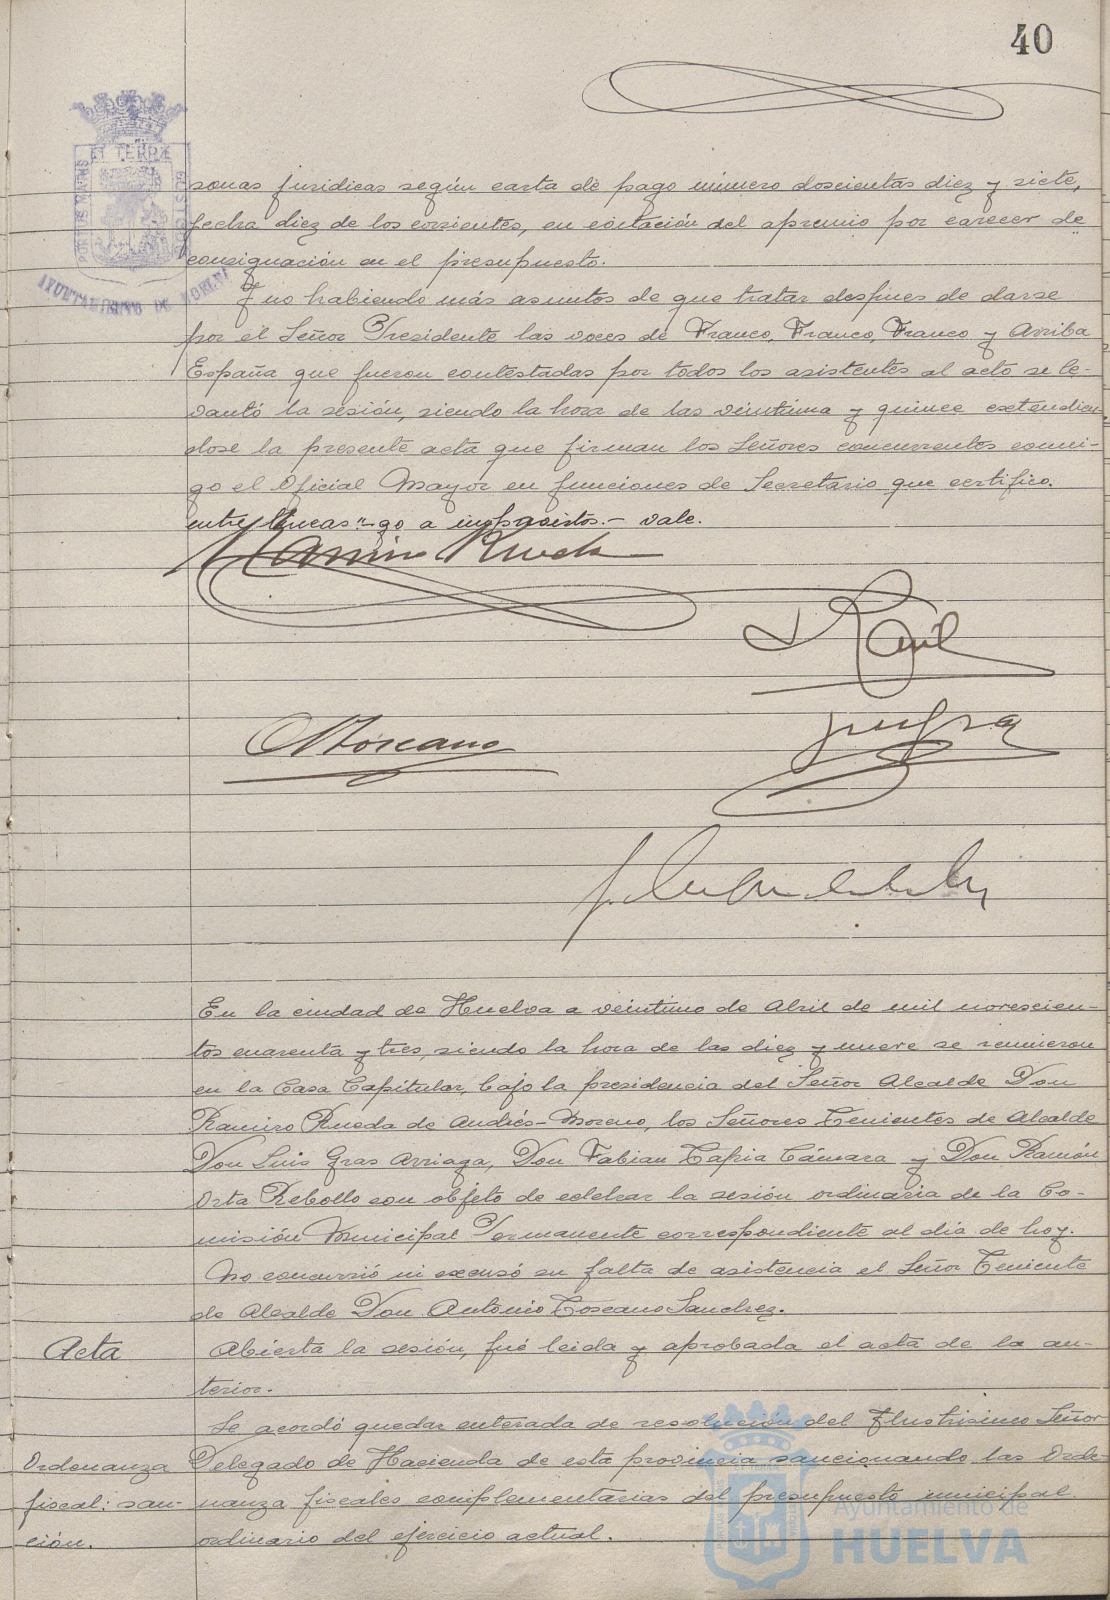 40
sonas juridicas según carta de pago número doscientas diez y siete,
fecha diez de los corrientes, en evitación del apremio por carecer de
consignación en el presupuesto.
Y no habiendo más asuntos de que tratar despues de darse
por el Señor Presidente las voces de Franco, Franco, Franco y Arriba
España que fueron contestadas por todos los asistentes al acto se le-
vantó la sesión, siendo la hora de las veintiuna y quince extendien-
dose la presente acta que firman los Señores concurrentes conmi-
go el Oficial Mayor en funciones de Secretario que certifico.
entre lineas a imprevistos.- vale.
Ramiro Rueda
AToscano
En la ciudad de Huelva a veintiuno de Abril de mil novescien-
tos cuarenta y tres, siendo la hora de las diez y nueve se reunieron
en la Casa Capitular, bajo la presidencia del Señor Alcalde Don
Ramiro Rueda de Andrés-Moreno, los Señores Tenientes de Alcalde
Don Luis Gras Arriaga, Don Fabian Tapia Cámara y Don Ramón
Orta Rebollo con objeto de celebrar la sesión ordinaria de la Co-
misión Municipal Permanente correspondiente al dia de hoy.
No concurrió ni excusó su falta de asistencia el Señor Teniente
de Alcalde Don Antonio Toscano Sanchez.
Acta
Abierta la sesión, fué leida y aprobada el acta de la an-
terior.
Ordenanza
fiscal: san-
ción.
Se acordó quedar enterada de resolución del Ilustrisimo Señor
Delegado de Hacienda de esta provincia sancionando las Orde-
nanza fiscales complementarias del presupuesto municipal
ordinario del ejercicio actual.
ET TERRÆ
PORTUS MARIS
CUSTODIA
AYUNTAMIENTO DE HUELVA
Ayuntamiento de
HUELVA